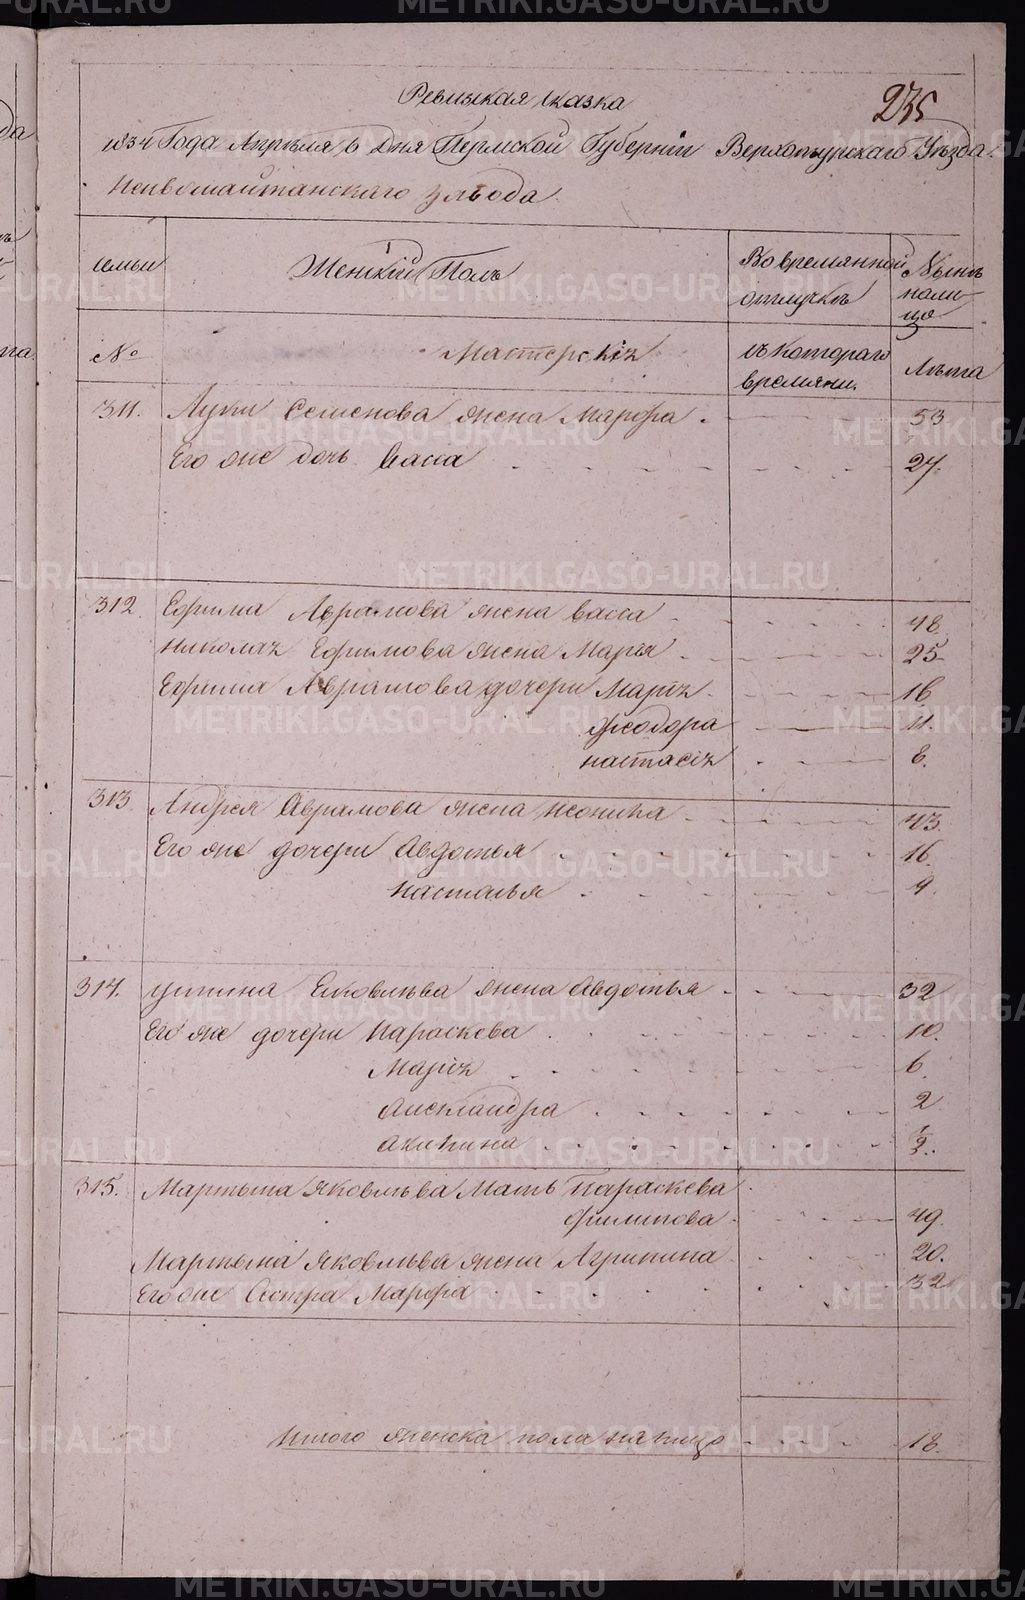 Ревизская сказка
235
1834 Года Апреля 6 Дня Пермской Губернии Верхотурскаго Уезда.
Невьшайтанскаго завода
Семьи
Женский Полъ
Во временной отлучкѣ
Нынѣ на лицо
№
Мастерскихъ
съ котораго времяни.
Лѣта
311. Луки Семенова жена Марфа 53
Его же дочь Васса 27.
312 Ефима Аврамова жена Васса 48.
Николая Ефимова жена Марья 25.
Ефима Аврамова дочери Марія 16
Феодора 11.
Настасія 8.
313 Андрея Аврамова жена Неонила 43.
Его же дочери Авдотья 16.
Насталья 9.
314. Устина Яковлѣва жена Авдотья 32
Его же дочери Параскева 10.
Марія 6.
Александра 2
Акилина ½.
315. Мартына Яковлѣва Мать Параскева
Филипова 49.
Мартына Яковлѣва жена Агрипина 20.
Его же Сестра Марфа 32
Итого женска пола на лицо 18.
METRIKI.GASO-URAL.RU